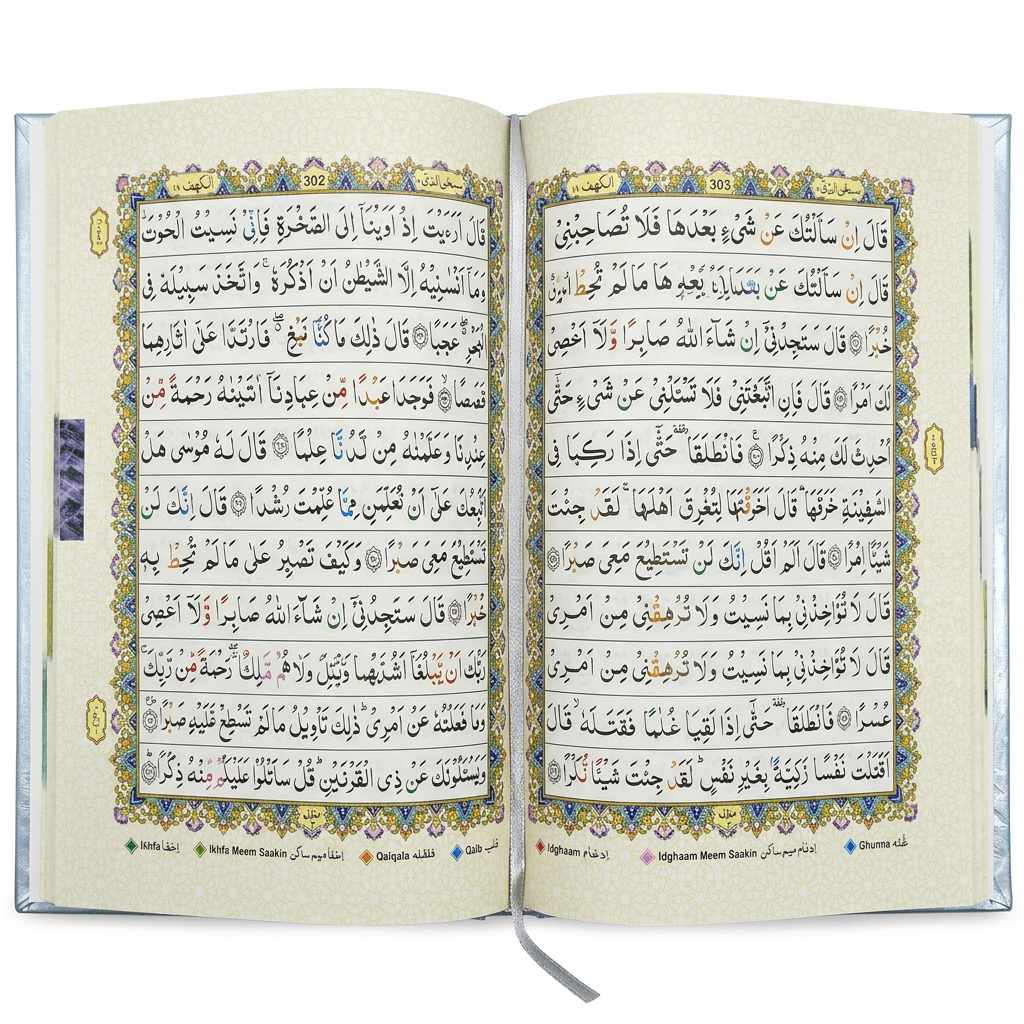 الكهف ١٨
302
قَالَ اَرَءَيْتَ اِذْ اَوَيْنَاۤ اِلَى الصَّخْرَةِ فَاِنِّىْ نَسِيْتُ الْحُوْتَ
وَمَاۤ اَنْسٰنِيْهُ اِلَّا الشَّيْطٰنُ اَنْ اَذْكُرَهٗ وَاتَّخَذَ سَبِيْلَهٗ فِى
الْبَحْرِ عَجَبًا قَالَ ذٰلِكَ مَا كُنَّا نَبْغِ فَارْتَدَّا عَلٰٓى اٰثَارِهِمَا
قَصَصًا فَوَجَدَا عَبْدًا مِّنْ عِبَادِنَاۤ اٰتَيْنٰهُ رَحْمَةً مِّنْ
عِنْدِنَا وَعَلَّمْنٰهُ مِنْ لَّدُنَّا عِلْمًا قَالَ لَهٗ مُوْسٰى هَلْ
اَتَّبِعُكَ عَلٰٓى اَنْ تُعَلِّمَنِ مِمَّا عُلِّمْتَ رُشْدًا قَالَ اِنَّكَ لَنْ
تَسْتَطِيْعَ مَعِىَ صَبْرًا وَكَيْفَ تَصْبِرُ عَلٰى مَا لَمْ تُحِطْ بِهٖ
خُبْرًا قَالَ سَتَجِدُنِىْۤ اِنْ شَآءَ اللّٰهُ صَابِرًا وَّلَاۤ اَعْصِىْ
رَبُّكَ اَنْ يَّبْلُغَاۤ اَشُدَّهُمَا رَحْمَةً مِّنْ رَّبِّكَ
وَمَا فَعَلْتُهٗ عَنْ اَمْرِىْ ذٰلِكَ تَاْوِيْلُ مَا لَمْ تَسْطِعْ عَلَيْهِ صَبْرًا
وَيَسْـَٔلُوْنَكَ عَنْ ذِى الْقَرْنَيْنِ قُلْ سَاَتْلُوْا عَلَيْكُمْ مِّنْهُ ذِكْرًا
Ikhfa اخفا
Ikhfa Meem Saakin اخفا ميم ساكن
Qalqala قلقله
Qalb قلب
الكهف ١٨
303
قَالَ اِنْ سَاَلْتُكَ عَنْ شَىْءٍۢ بَعْدَهَا فَلَا تُصَاحِبْنِىْ
قَالَ اِنْ سَاَلْتُكَ عَنْ هَا مَا لَمْ تُحِطْ
خُبْرًا قَالَ سَتَجِدُنِىْۤ اِنْ شَآءَ اللّٰهُ صَابِرًا وَّلَاۤ اَعْصِىْ
لَكَ اَمْرًا قَالَ فَاِنِ اتَّبَعْتَنِىْ فَلَا تَسْـَٔلْنِىْ عَنْ شَىْءٍ حَتّٰٓى
اُحْدِثَ لَكَ مِنْهُ ذِكْرًا فَانْطَلَقَا حَتّٰۤى اِذَا رَكِبَا فِى
السَّفِيْنَةِ خَرَقَهَا قَالَ اَخَرَقْتَهَا لِتُغْرِقَ اَهْلَهَا لَقَدْ جِئْتَ
شَيْـًٔا اِمْرًا قَالَ اَلَمْ اَقُلْ اِنَّكَ لَنْ تَسْتَطِيْعَ مَعِىَ صَبْرًا
قَالَ لَا تُؤَاخِذْنِىْ بِمَا نَسِيْتُ وَلَا تُرْهِقْنِىْ مِنْ اَمْرِىْ
قَالَ لَا تُؤَاخِذْنِىْ بِمَا نَسِيْتُ وَلَا تُرْهِقْنِىْ مِنْ اَمْرِىْ
عُسْرًا فَانْطَلَقَا حَتّٰۤى اِذَا لَقِيَا غُلٰمًا فَقَتَلَهٗ قَالَ
اَقَتَلْتَ نَفْسًا زَكِيَّةً بِغَيْرِ نَفْسٍ لَقَدْ جِئْتَ شَيْـًٔا نُّكْرًا
Idghaam ادغام
Idghaam Meem Saakin ادغام ميم ساكن
Ghunna غنه